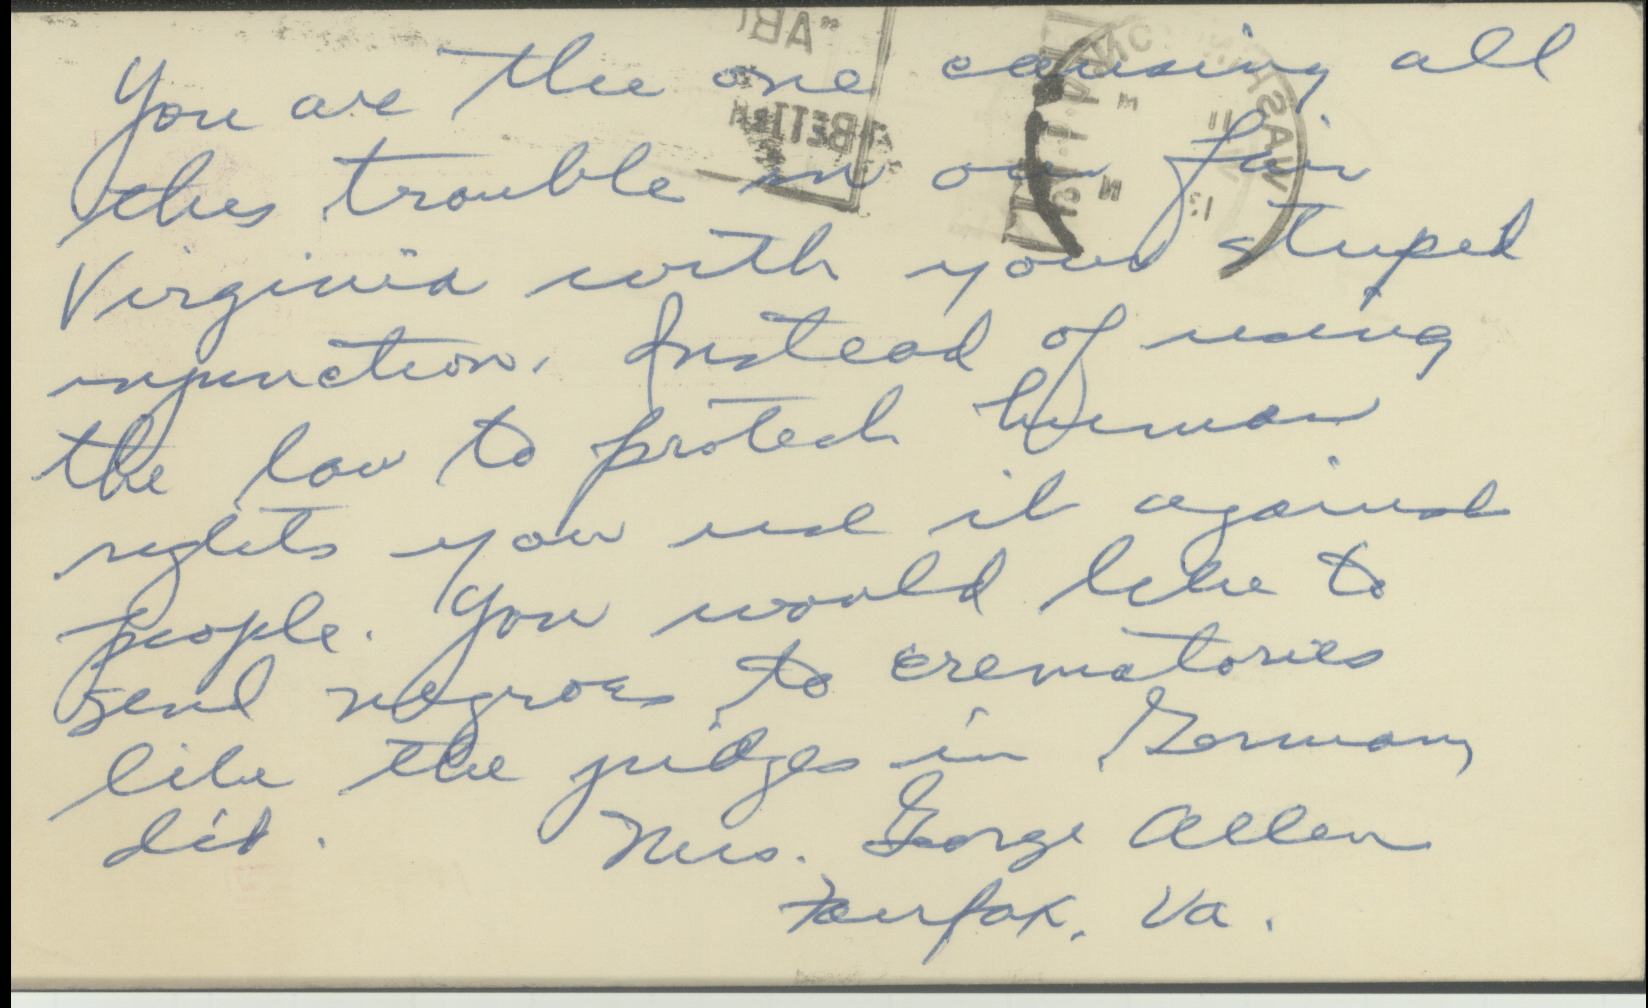 You are the one causing all
this trouble in our fair
Virginia with your stupid
injunction. Instead of using
the law to protect human
rights you use it against
people. You would like to
send negroes to crematories
like the judges in Germany
did. Mrs. George Allen
Fairfax, Va.